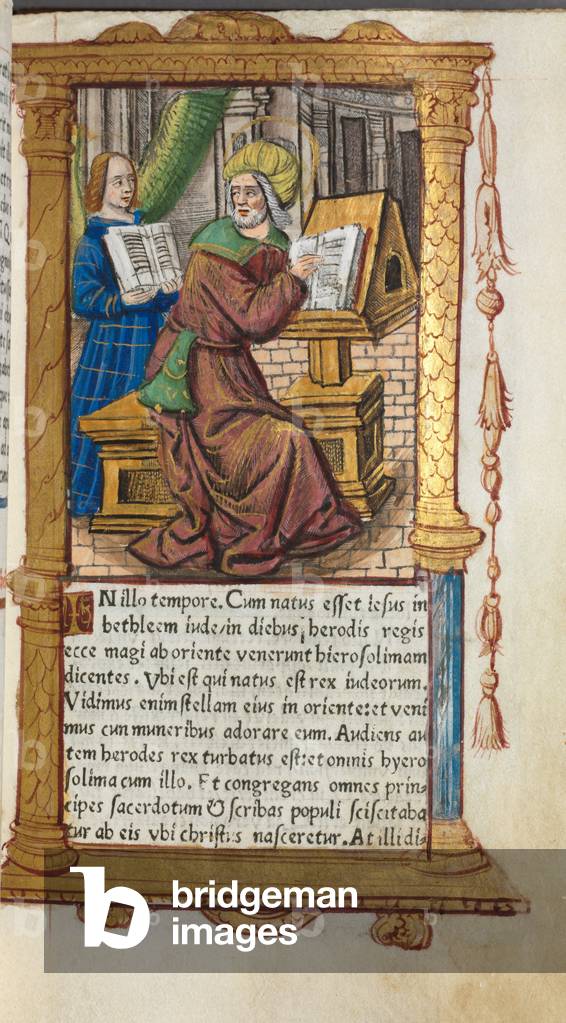 IN illo tempore. Cum natus esset iesus in
bethleem iude/in diebus herodis regis
ecce magi ab oriente venerunt hierosolimam
dicentes. Vbi est qui natus est rex iudeorum.
Vidimus enim stellam eius in oriente:et veni
mus cun muneribus adorare eum. Audiens au
tem herodes rex turbatus est:et omnis hyero
solima cum illo. Et congregans omnes prin-
cipes sacerdotum & scribas populi sciscitaba
tur ab eis vbi christus nasceretur. At illi di-
bridgeman
images